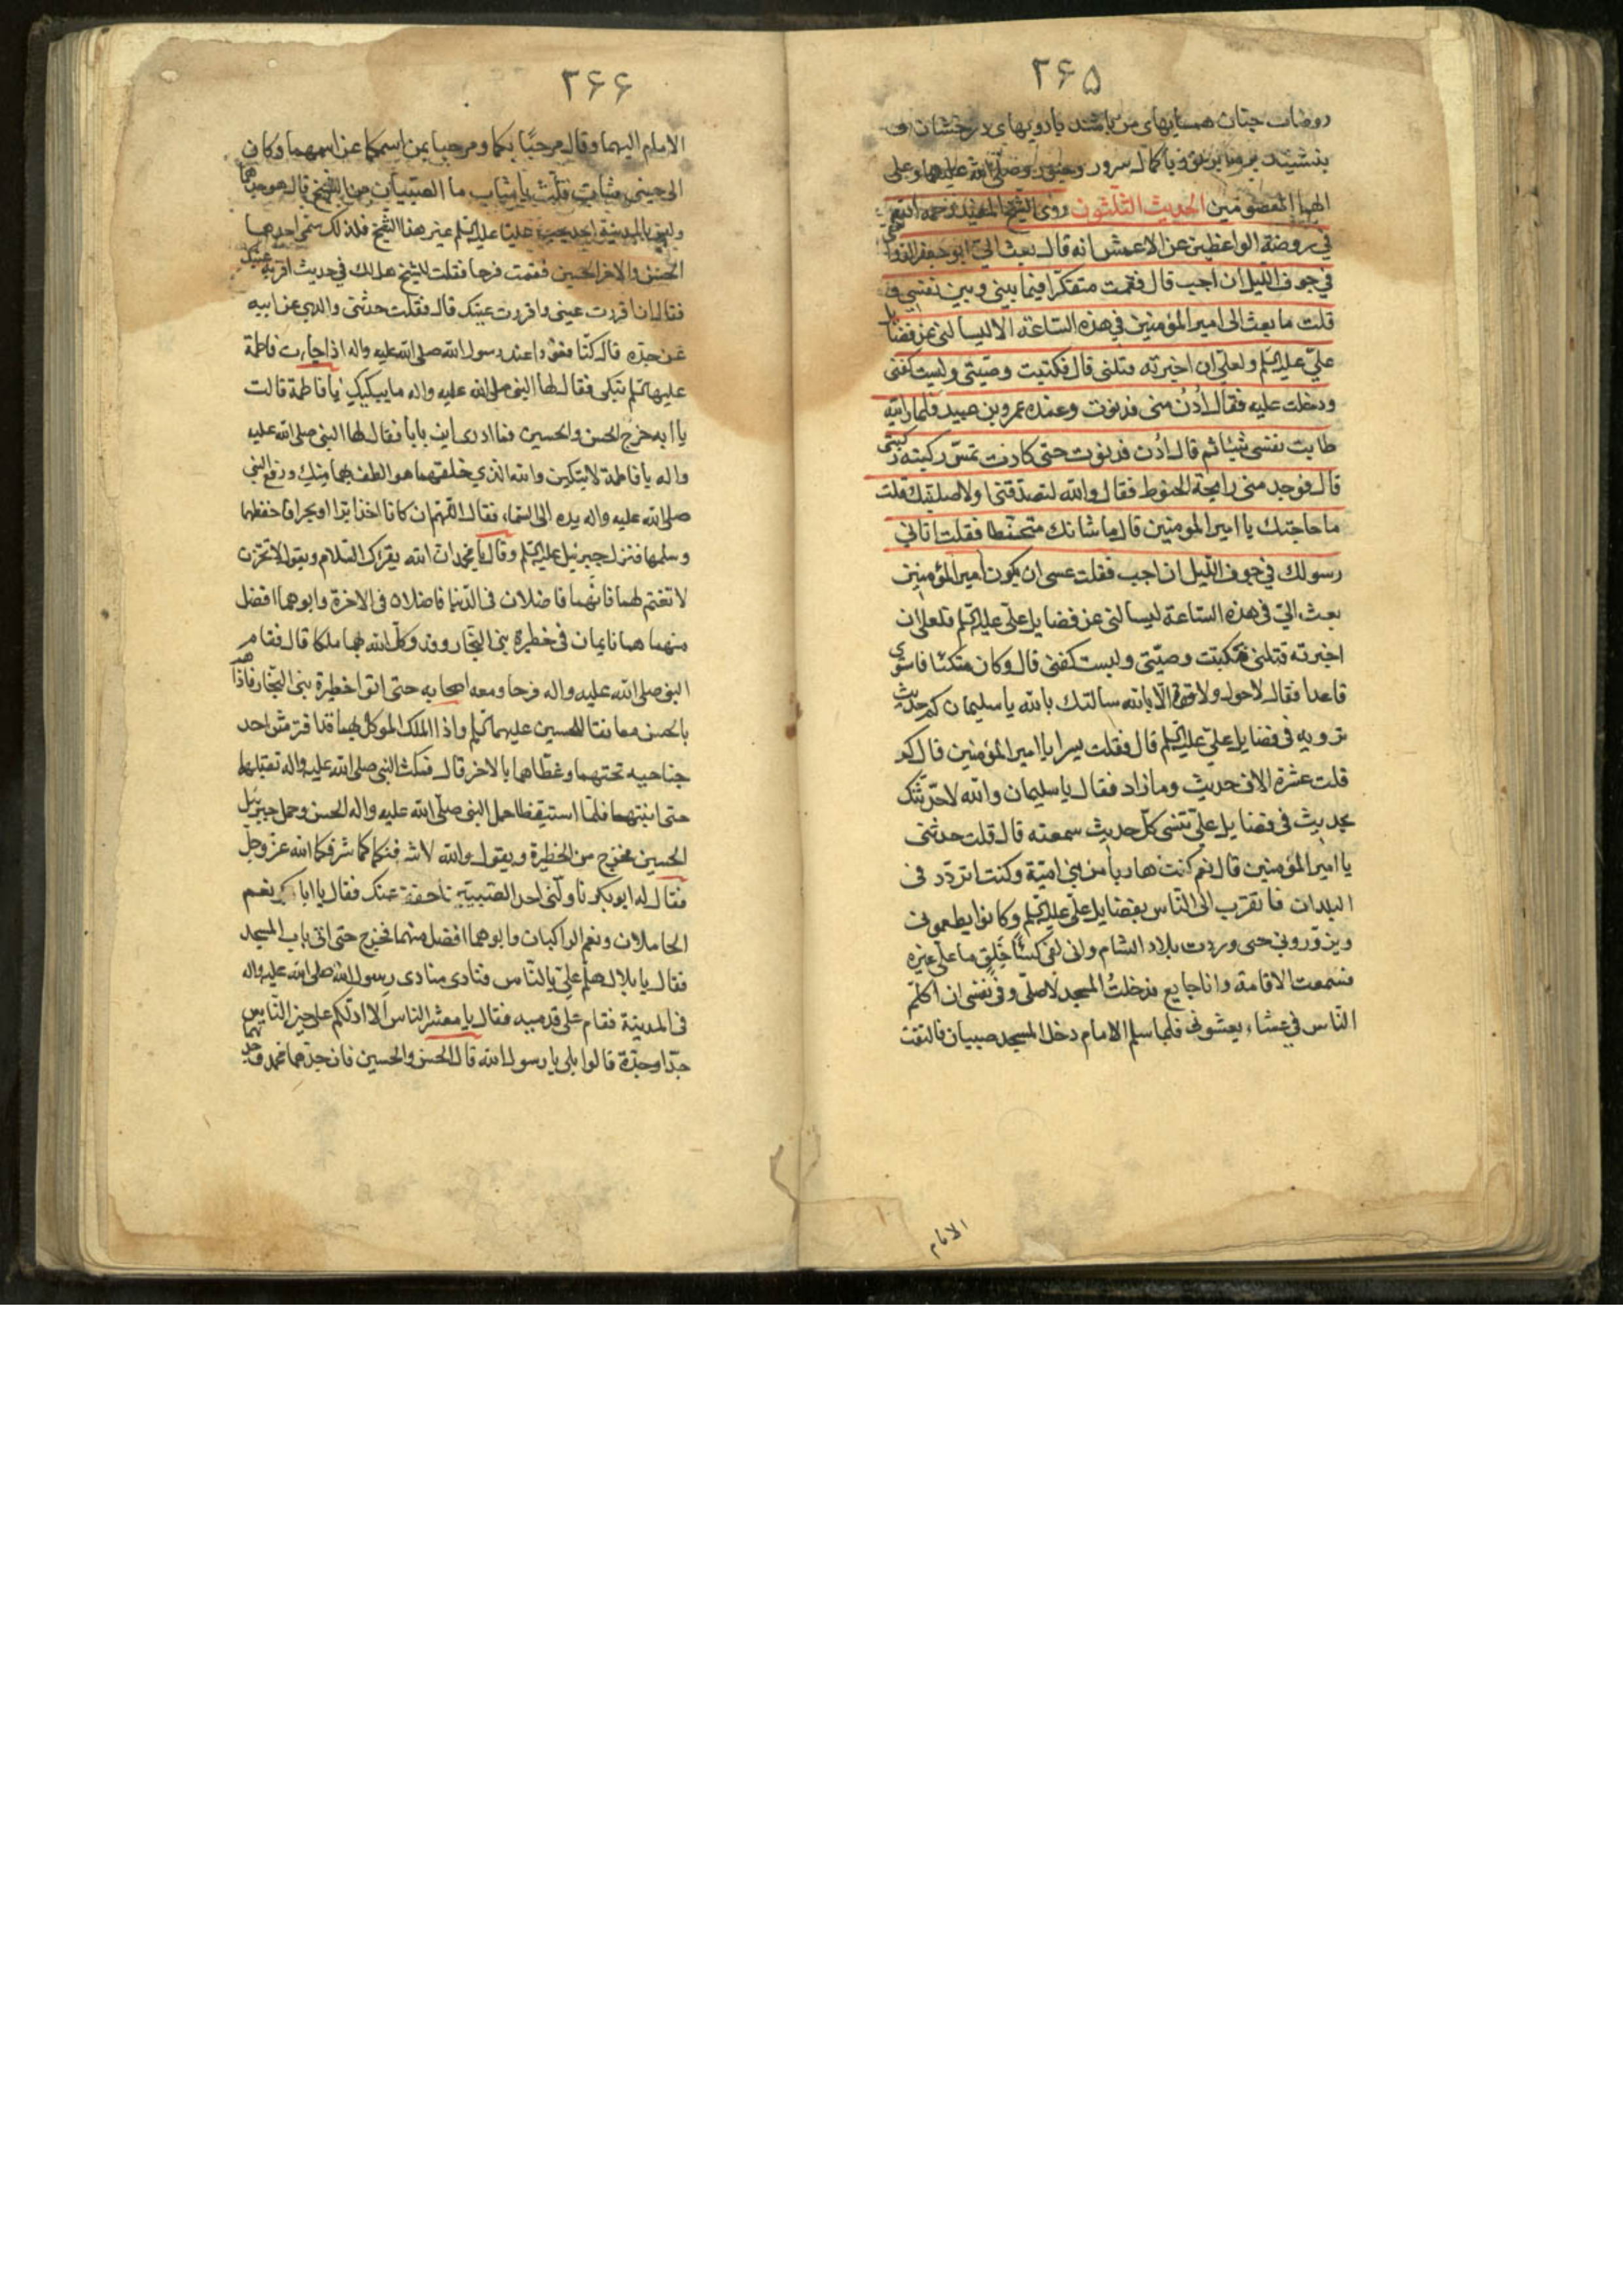 ۲۶۵
روضات جنان همسایهای من باشند بارویهای درخشان و
بنشینند بر منابر نور و با کمال سرور و صلی الله علیهما و علی
الهما المعصومین الحدیث الثلثون روی الشیخ المفید رحمه الله
فی روضة الواعظین عن الاعمش انه قال بعث الیّ ابو جعفر الدوا
فی جوف اللیل ان اجب قال فقمت متفکرا فیما بینی و بین نفسی و
قلت ما بعث الی امیر المؤمنین فی هذه الساعة الا لیسالنی عن فضا
علیّ علیه السلم و لعلی ان اخبرته قتلنی قال فکتبت وصیتی و لبست کفنی
و دخلت علیه فقال اُدْن منی فدنوت و عنده عمرو بن عبید فلما رایته
طابت نفسی شیئا ثم قال ادن فدنوت حتی کادت تمسّ رکبته رکبتی
قال فوجد منی رایحة الحنوط فقال والله لتصدقنی او لاصلبنک قلت
ما حاجتک یا امیر المومنین قال ما شانک متحنطا فقلت اتانی
رسولک فی جوف اللیل ان اجب فقلت عسی ان یکون امیر المؤمنین
بعث الیّ فی هذه الساعة لیسالنی عن فضایل علی علیه السلم فلعلی ان
اخبرته قتلنی فکتبت وصیّتی و لبست کفنی قال و کان متکئا فاستوی
قاعدا فقال لاحول ولا قوة الا بالله سالتک بالله یا سلیمان کم حدیث
ترویه فی فضایل علیّ علیه السلم قال فقلت یسرا یا امیر المؤمنین قال کم
قلت عشرة الاف حدیث و ما زاد فقال یا سلیمان والله لاحدّثنک
بحدیث فی فضایل علیّ تنسی کلّ حدیث سمعته قال قلت حدثنی
یا امیر المؤمنین قال نعم کنت هاربا من بنی امیّة و کنت اتردّد فی
البلدان فاتقرب الی الناس بفضایل علی علیه السلم و کانوا یطعمونی
و یزوّرونی حتی وردت بلاد الشام و انی لفی کساء خَلِق ما علیّ غیره
فسمعت الاقامة و انا جایع فدخلتُ المسجد لاصلی و فی نفسی ان اکلّم
الناس فی عشاء یعشونی فلما سلم الامام دخل المسجد صبیان فالتفت
الامام
۲۶۶
الامام الیهما و قال مرحبًا بکما و مرحبا بمن اسمکما عن اسمهما و کان
الی جنبی شاب فقلت یا شاب ما الصبیان من الشیخ قال هو جدهما
و لیس بالمدینة احد یحب علیّا علیه السلم غیر هذا الشیخ فلذلک سمّی احدهما
الحسن و الاخر الحسین فقمت فرحا فقلت للشیخ هل لک فی حدیث اقر به عینک
فقال ان اقررت عینی اقررت عینک قال فقلت حدثنی والدی عن ابیه
عن جدّه قال کنّا قعودا عند رسول الله صلی الله علیه و اله اذا جاءت فاطمة
علیها السلم تبکی فقال لها النبی صلی الله علیه و اله ما یبکیکِ یا فاطمة قالت
یا ابه خرج الحسن و الحسین فما ادری این باتا فقال لها النبی صلی الله علیه
و اله یا فاطمة لا تبکین والله الذی خلقهما هو الطف بهما منک و رفع النبی
صلی الله علیه و اله یده الی السماء فقال اللهم ان کانا اخذا برّا او بحرا فاحفظهما
و سلمهما فنزل جبرئیل علیه السلم و قال یا محمد ان الله یقرئک السلام و یقول لا تحزن
لا تغتم لهما فانهما فاضلان فی الدّنیا فاضلان فی الاخرة و ابوهما افضل
منهما هما نایمان فی حظیرة بنی النجّار و قد وکّل الله بهما ملکا قال فقام
النبی صلی الله علیه و اله فرحا و معه اصحابه حتی اتوا حظیرة بنی النجار فاذا هم
بالحسن معانقا للحسین علیهما السلم و اذا الملک الموکل بهما قد افترش احد
جناحیه تحتهما و غطّاهما بالاخر قال فمکث النبی صلی الله علیه و اله یقبلهما
حتی انتبها فلمّا استیقظا حمل النبی صلّی الله علیه و اله الحسن و حمل جبرئیل
الحسین فخرج من الحظیرة و یقول والله لاشرفنکما کما شرفکما الله عزّ و جل
فقال له ابوبکر ناولنی احد الصبیین نخفف عنک فقال یا ابابکر نعم
الحاملان و نعم الراکبان و ابوهما افضل منهما فخرج حتی اتی باب المسجد
فقال یا بلال هلم علیّ بالنّاس فنادی منادی رسول الله صلی الله علیه و اله
فی المدینة فقام علی قدمیه فقال یا معشر الناس الا ادلّکم علی خیر النّاس
جدّا و جدّة قالوا بلی یا رسول الله قال الحسن و الحسین فان جدّهما محمد و جدتهما